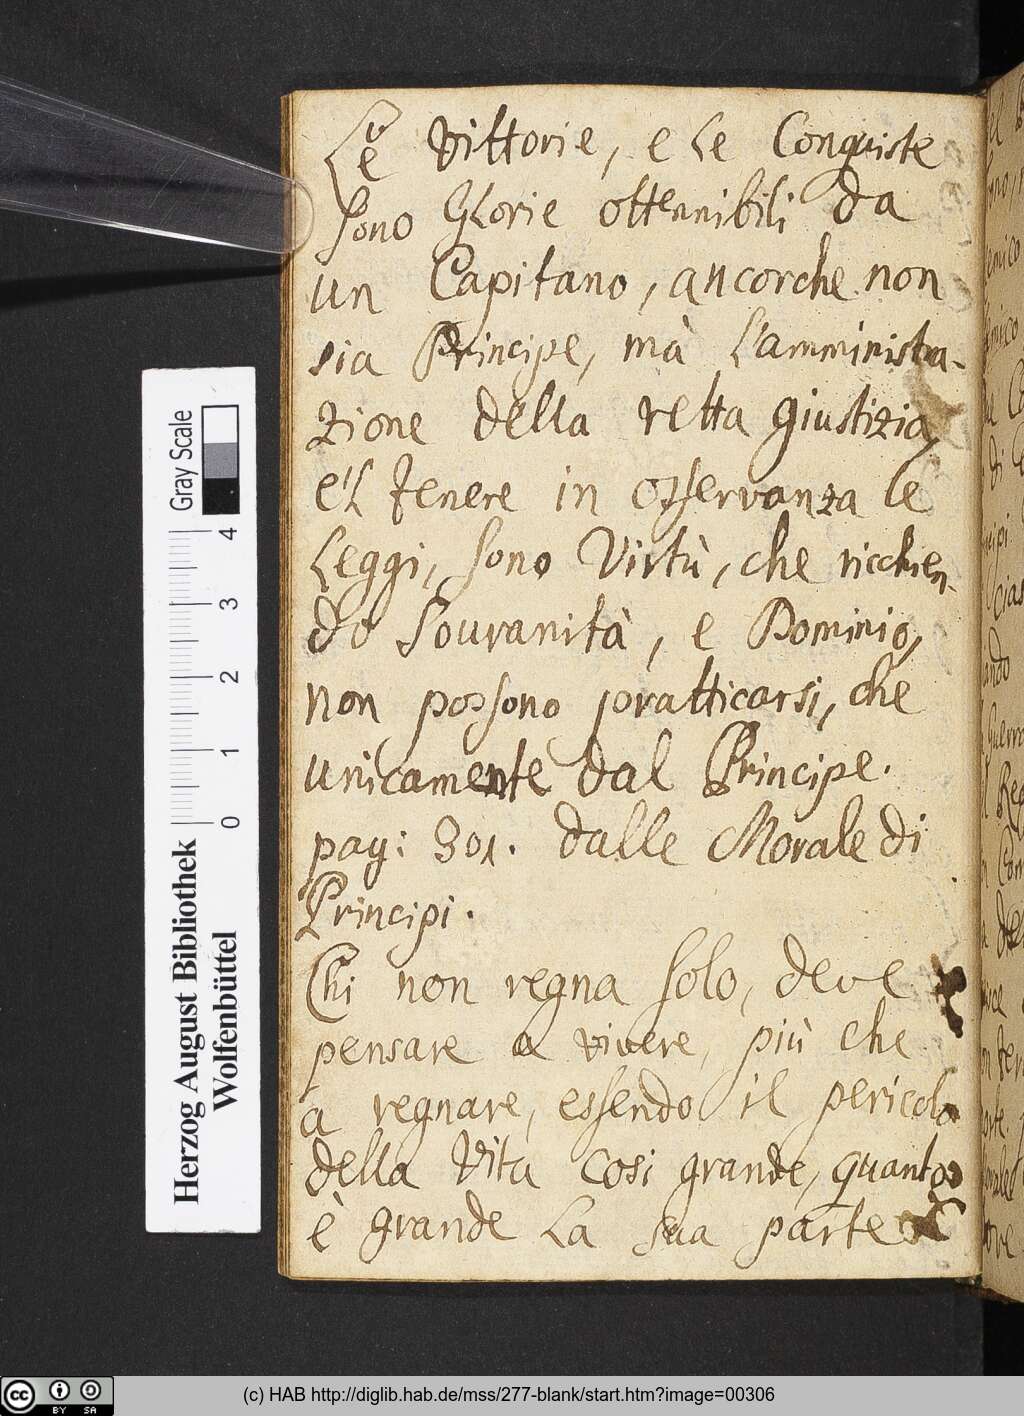 Le Vittorie, e le Conquiste
sono Glorie ottennibili da
un Capitano, ancorche non
sia Principe, mà l'amministra-
zione della retta giustizia,
e'l tenere in osservanza le
Leggi, sono Virtù, che ricchien-
do Souranità, e Dominio,
non possono pratticarsi, che
unicamente dal Principe.
pag: 301. dalle Morale di
Principi.
Chi non regna solo, deve
pensare a vivere, più che
a regnare, essendo il pericolo
della Vita cosi grande, quanto
è grande la sua parte
Gray Scale
0 1 2 3 4
Herzog August Bibliothek
Wolfenbüttel
cc BY SA
(c) HAB http://diglib.hab.de/mss/277-blank/start.htm?image=00306